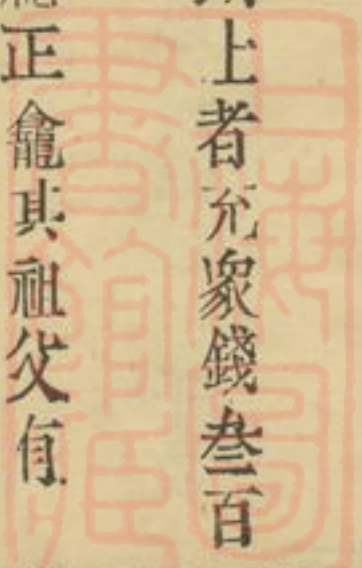 上者充衆錢叁百
正龕其祖父有